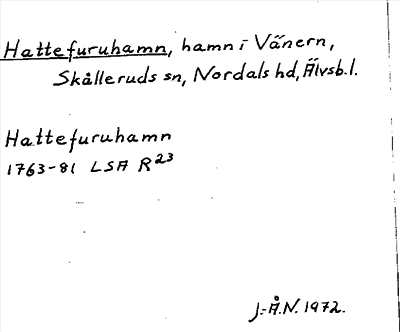 Hattefuruhamn, hamn i Vänern,
Skålleruds sn, Nordals hd, Älvsb. l.
Hattefuruhamn
1763-81 LSA R23
J.-Å.N. 1972.